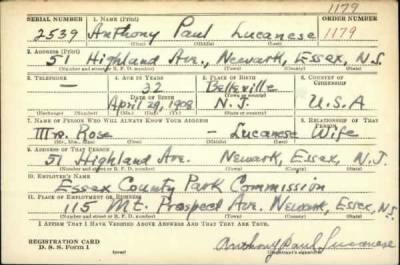 1179
SERIAL NUMBER 1. NAME (Print) ORDER NUMBER
2539 Anthony Paul Lucanese 1179
(First) (Middle) (Last)
2. ADDRESS (Print)
51 Highland Ave., Newark, Essex, N.J.
(Number and street or R. F. D. number) (Town) (County) (State)
3. TELEPHONE 4. AGE IN YEARS 5. PLACE OF BIRTH 6. COUNTRY OF CITIZENSHIP
— 32 Belleville
DATE OF BIRTH (Town or county)
April 29, 1908 N.J. U.S.A
(Exchange) (Number) (Mo.) (Day) (Yr.) (State or country)
7. NAME OF PERSON WHO WILL ALWAYS KNOW YOUR ADDRESS 8. RELATIONSHIP OF THAT PERSON
Mrs. Rose - Lucanese Wife
(Mr., Mrs., Miss) (First) (Middle) (Last)
9. ADDRESS OF THAT PERSON
51 Highland Ave. Newark, Essex, N.J.
(Number and street or R. F. D. number) (Town) (County) (State)
10. EMPLOYER'S NAME
Essex County Park Commission
11. PLACE OF EMPLOYMENT OR BUSINESS
115 Mt. Prospect Ave. Newark, Essex, N.J.
(Number and street or R. F. D. number) (Town) (County) (State)
I AFFIRM THAT I HAVE VERIFIED ABOVE ANSWERS AND THAT THEY ARE TRUE.
REGISTRATION CARD
D. S. S. Form 1 (over) Anthony Paul Lucanese
(Registrant's signature)